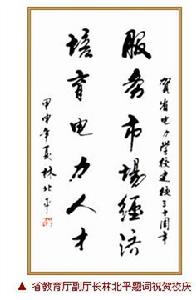 贺省电力学校建校十周年
服务市場經济
培育电力人才
甲申年夏林北平
▲ 省教育厅副厅长林北平题词祝贺校庆